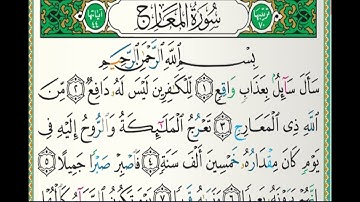 سُورَةُ الْمَعَارِجِ
بِسْمِ اللَّهِ الرَّحْمَٰنِ الرَّحِيمِ
سَأَلَ سَآئِلٌۢ بِعَذَابٍ وَاقِعٍ ﴿١﴾ لِّلْكَٰفِرِينَ لَيْسَ لَهُۥ دَافِعٌ ﴿٢﴾ مِّنَ
اللَّهِ ذِى الْمَعَارِجِ ﴿٣﴾ تَعْرُجُ الْمَلَٰٓئِكَةُ وَالرُّوحُ إِلَيْهِ فِى
يَوْمٍ كَانَ مِقْدَارُهُۥ خَمْسِينَ أَلْفَ سَنَةٍ ﴿٤﴾ فَاصْبِرْ صَبْرًا جَمِيلًا ﴿٥﴾